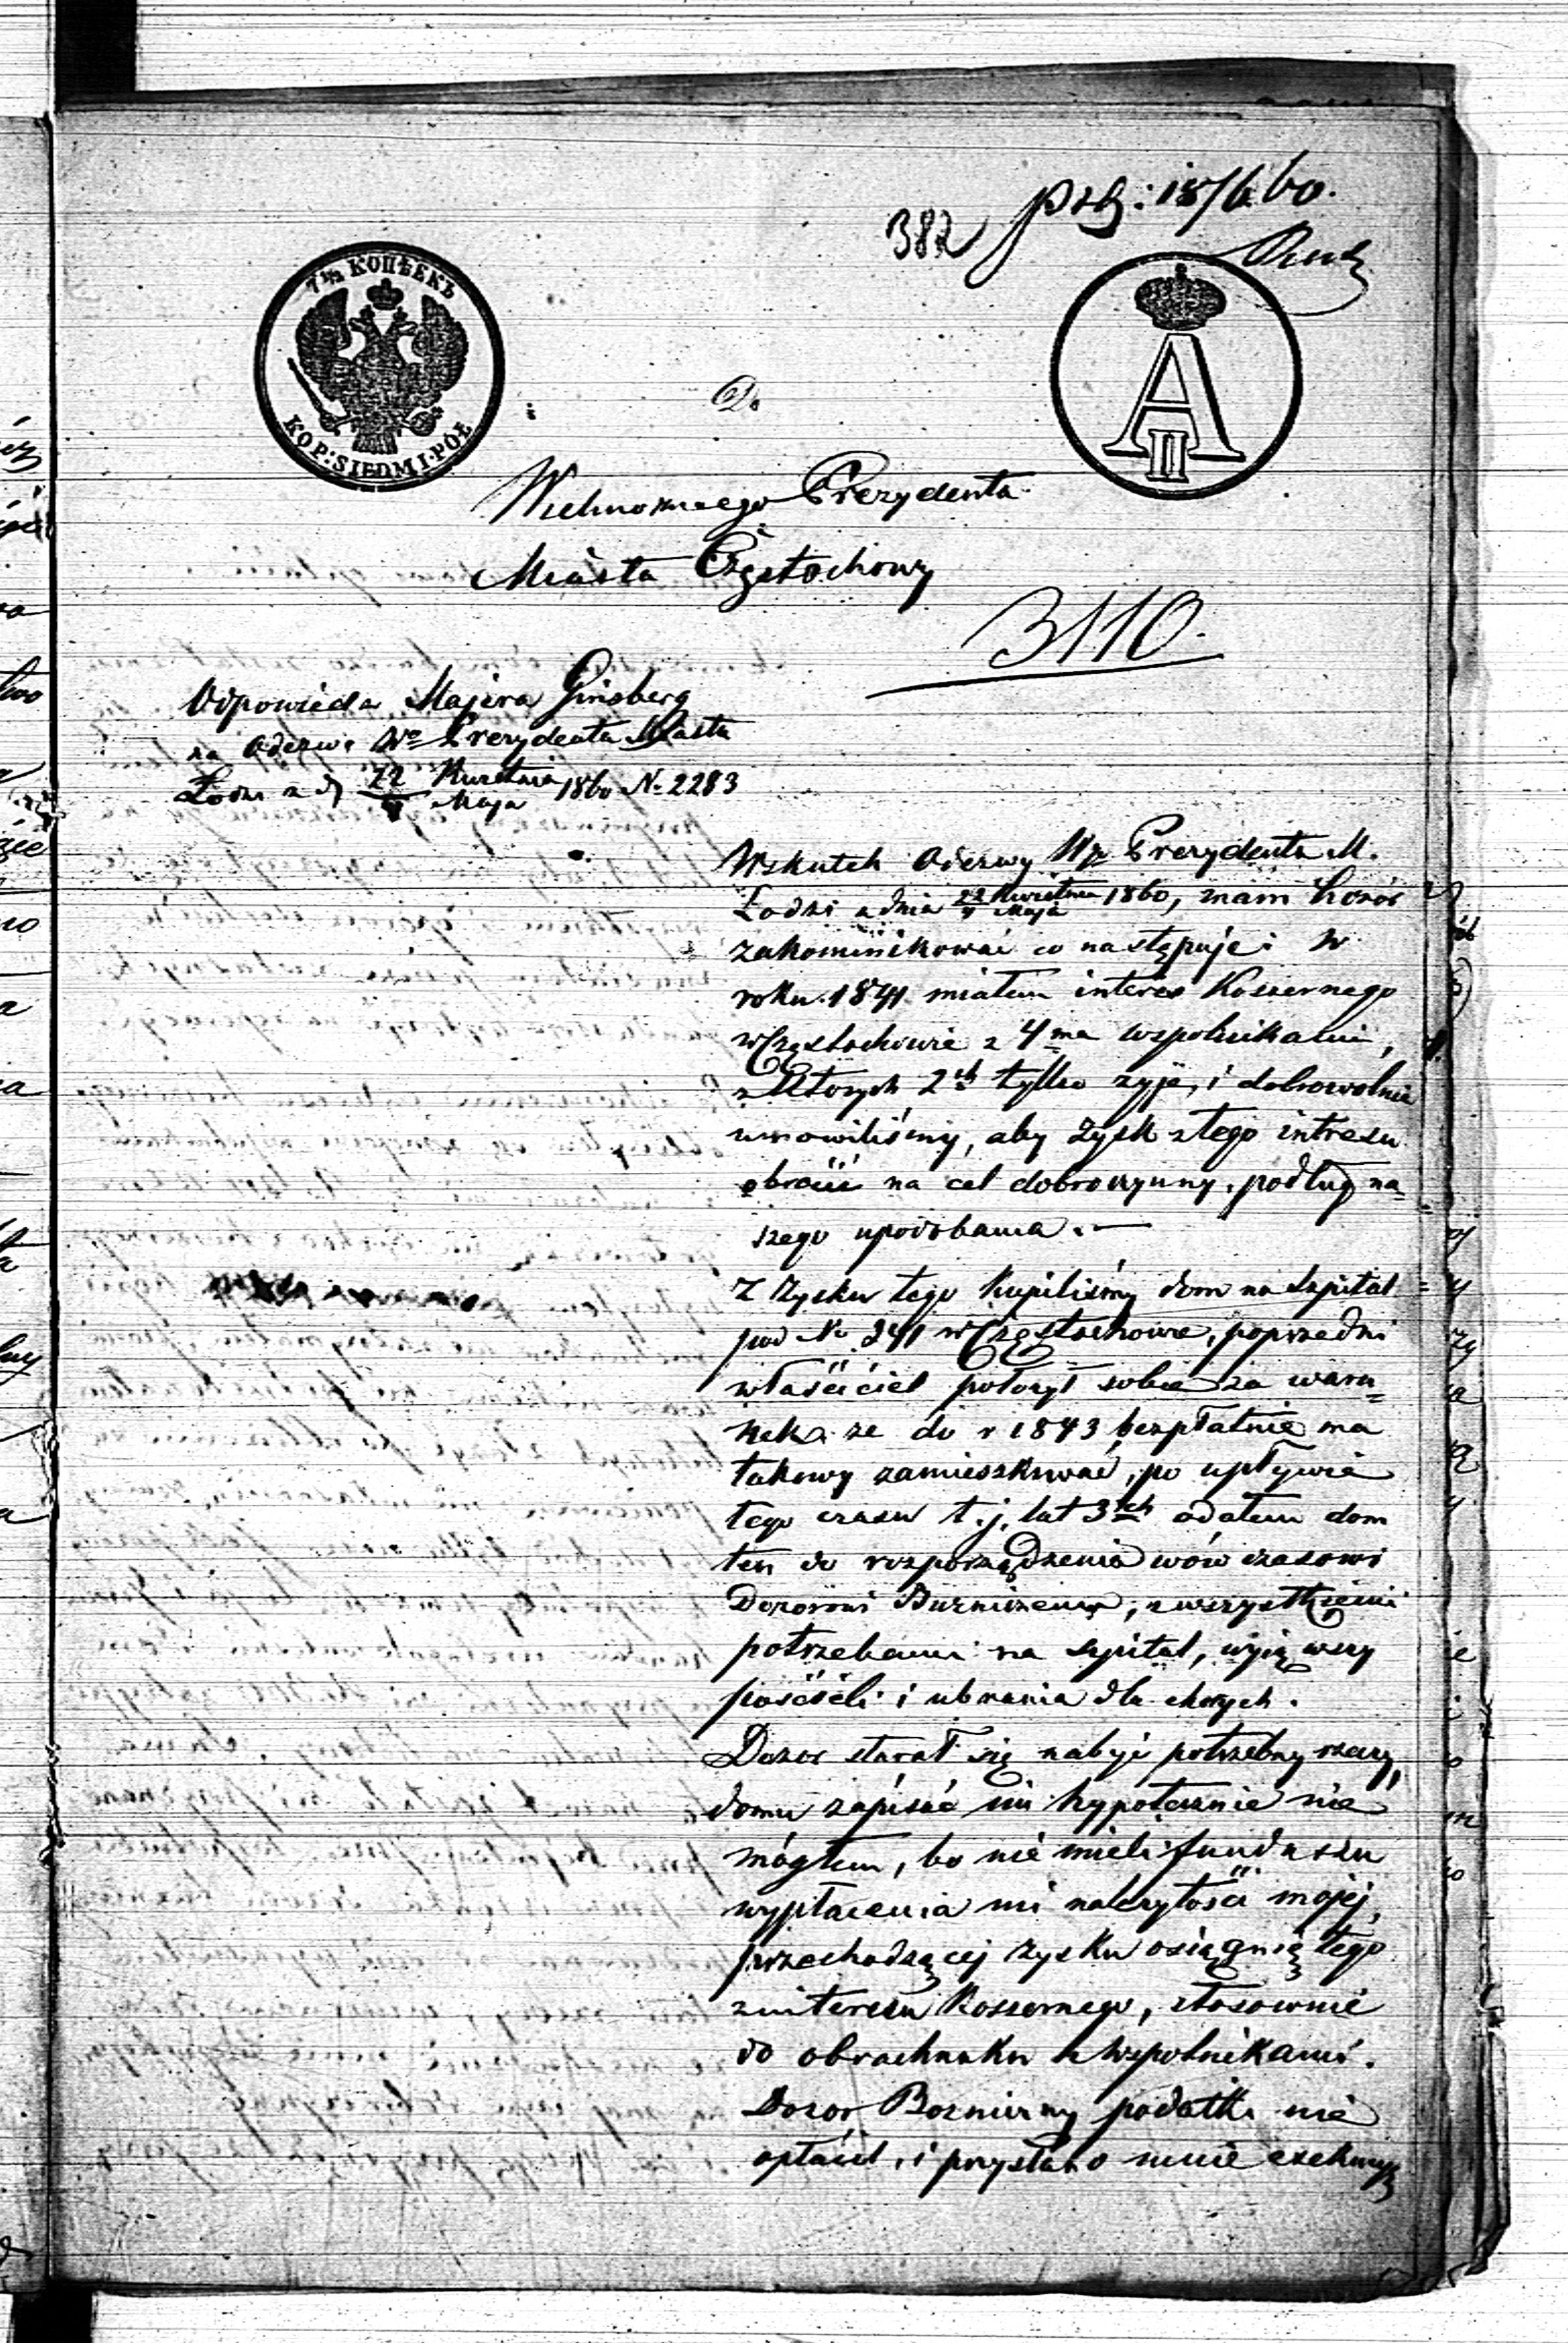 382 prz: 18/6 60.
7½ КОПѢЕКЪ
KOP: SIEDM I PÓŁ
A II
Do
Wielmożnego Prezydenta
Miasta Częstochowy
3110.
Odpowiedź Majera Ginsberg
na Odezwę Wo Prezydenta Miasta
Łodzi z d 22 Kwietnia / 4 Maja 1860 No 2283
Wskutek Odezwy Wgo Prezydenta M.
Łodzi z dnia 22 Kwietnia / 4 Maja 1860, mam honor
zakominikować co następuje: W
roku 1841 miałem interes Koszernego
w Częstochowie z 4ma wspolnikami,
z Ktorych 2ch tylko zyje, i dobrowolnie
umowiliśmy, aby zysk z tego intresu
obrócić na cel dobroczynny, podług na=
szego upodobania. —
Z Zysku tego Kupiliśmy dom na Szpital
pod No 241 w Częstochowie, poprzedni
właściciel położył sobie za waru=
nek ze do r 1843 bezpłatnie ma
takowy zamieszkiwać, po upływie
tego czasu t.j. lat 3ch odałem dom
ten do rozporządzenia wów czasowi
Dozorowi Bużniczemu, z wszystkiemi
potrzebami na szpital, wyią wszy
pościeli i ubrania dla chorych.
Dozor starał się nabyć potrzebny rzeczy,
domu zapisać im hypotecznie nie
mógłem, bo nie mieli funduszu
wypłacenia mi należytości mojej,
przechodzącej zysku osiągnię tego
z interesu Koszernego, stosownie
do obrachunku z wspolnikami.
Dozor Bozniczny podatki nie
opłacił, i przysłano mnie exekucyę